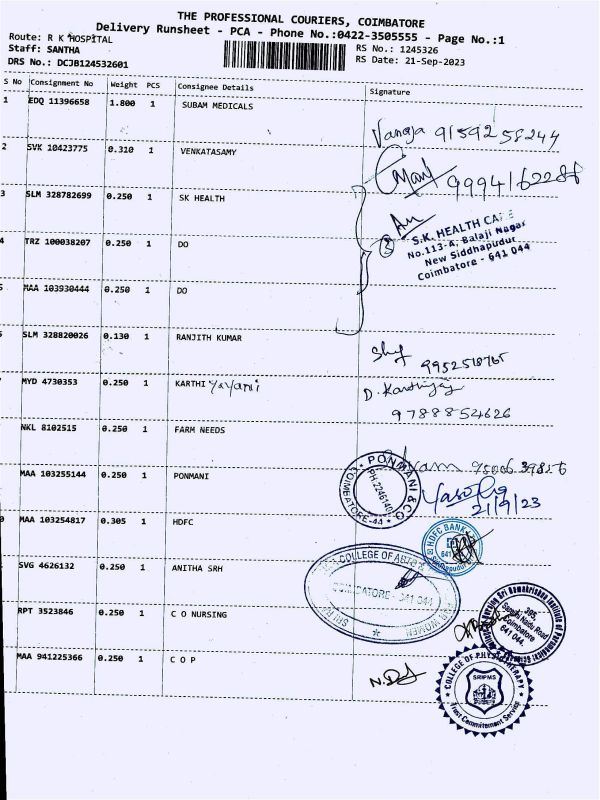 THE PROFESSIONAL COURIERS, COIMBATORE
Delivery Runsheet - PCA - Phone No.:0422-3505555 - Page No.:1
Route: R K HOSPITAL
Staff: SANTHA
DRS No.: DCJB124532601
RS No.: 1245326
RS Date: 21-Sep-2023
S No Consignment No Weight PCS Consignee Details Signature
1 EDQ 11396658 1.800 1 SUBAM MEDICALS
Vanaja 9159258244
2 SVK 10423775 0.310 1 VENKATASAMY
Mani 9994162286
3 SLM 328782699 0.250 1 SK HEALTH
S.K. HEALTH CARE
No.113-A, Balaji Nagar
New Siddhapudur
Coimbatore - 641 044
4 TRZ 100038207 0.250 1 DO
5 MAA 103930444 0.250 1 DO
SLM 328820026 0.130 1 RANJITH KUMAR
9952518765
MYD 4730353 0.250 1 KARTHI yayani
D. Karthiyay
9788854626
NKL 8102515 0.250 1 FARM NEEDS
MAA 103255144 0.250 1 PONMANI
PONMANI & CO
PH:2246140
COIMBATORE-44
21/9/23
0 MAA 103254817 0.305 1 HDFC
HDFC BANK
641
Siddhapudur
SVG 4626132 0.250 1 ANITHA SRH
COLLEGE OF ARTS
COIMBATORE - 641 044
FOR WOMEN
RPT 3523846 0.250 1 C O NURSING
Sri Ramakrishna Institute of Paramedical Sciences
395,
Sarojini Naidu Road,
Coimbatore
641 044.
MAA 941225366 0.250 1 C O P
COLLEGE OF PHYSIOTHERAPY
SRIPMS
Trust Commitment Service